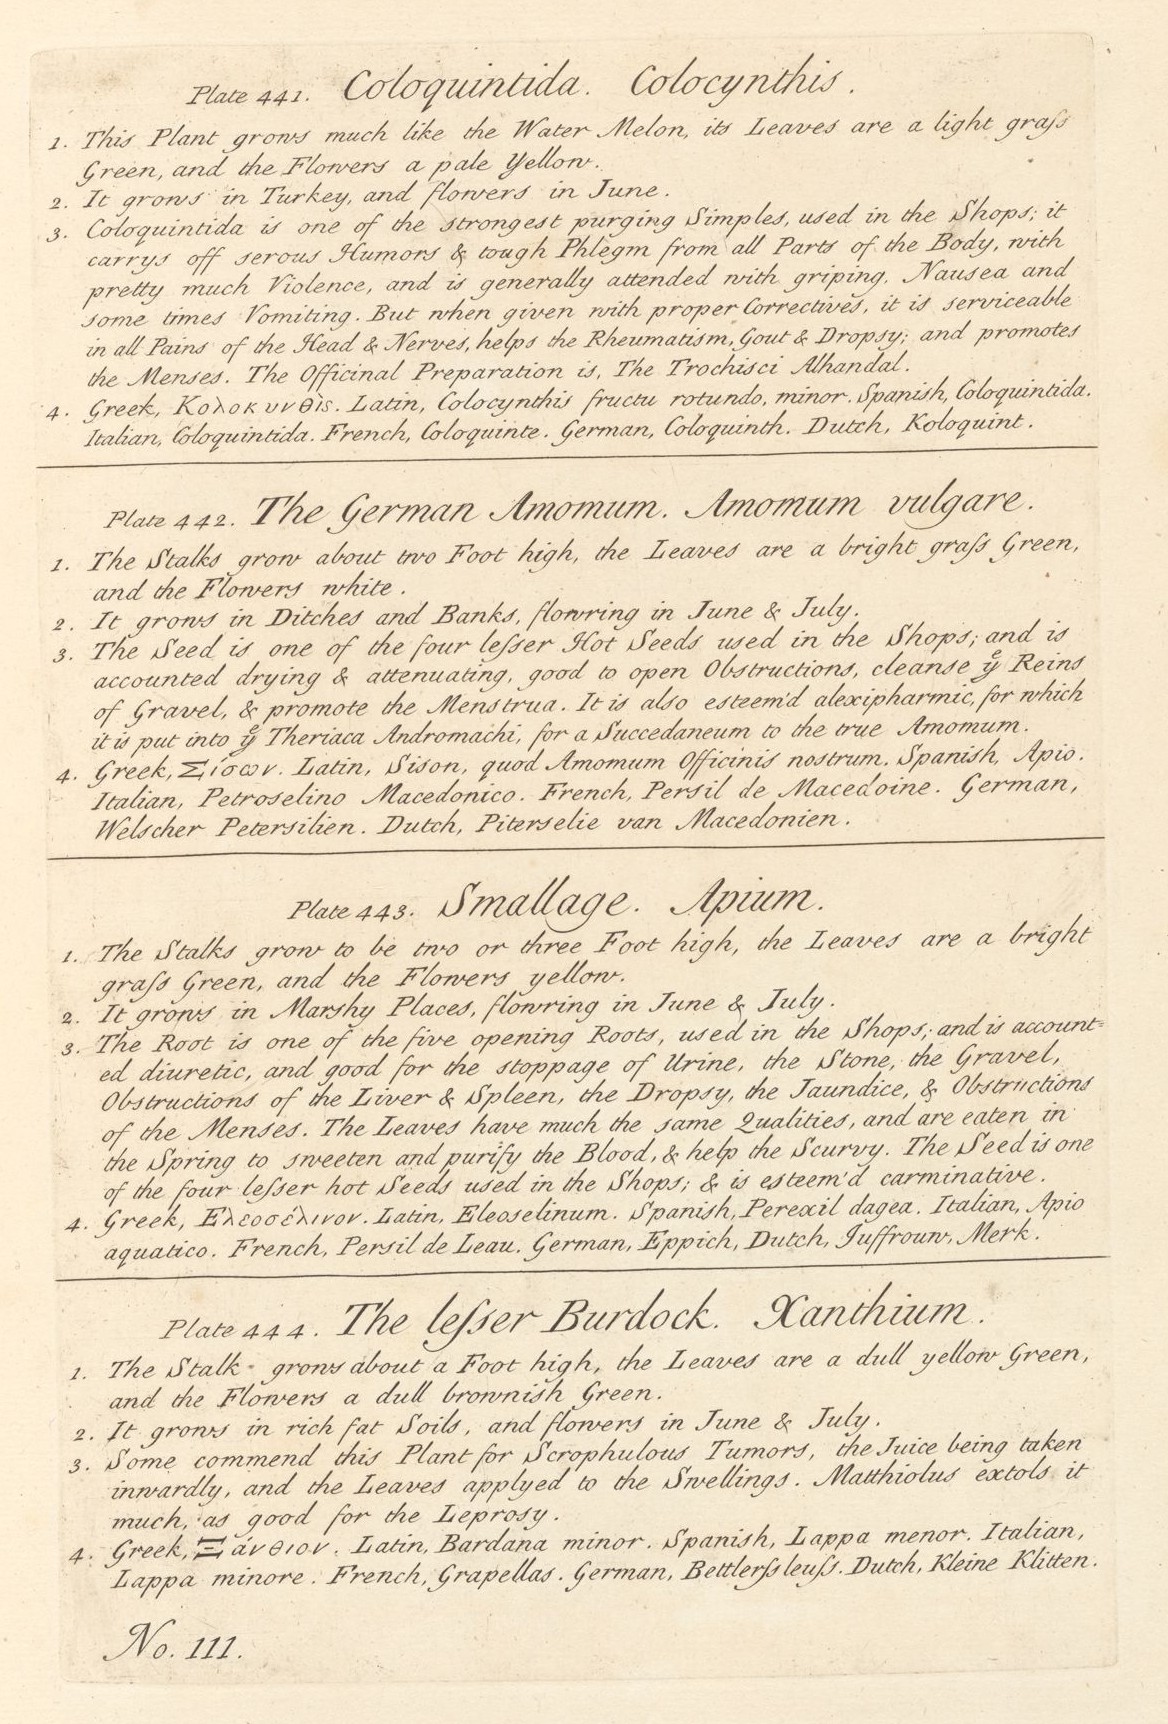 Plate 441. Coloquintida. Colocynthis.
1. This Plant grows much like the Water Melon, its Leaves are a light graſs
Green, and the Flowers a pale Yellow.
2. It grows in Turkey, and flowers in June.
3. Coloquintida is one of the strongest purging Simples, used in the Shops; it
carrys off serous Humors & tough Phlegm from all Parts of the Body, with
pretty much Violence, and is generally attended with griping, Nausea and
some times Vomiting. But when given with proper Correctives, it is serviceable
in all Pains of the Head & Nerves, helps the Rheumatism, Gout & Dropsy; and promotes
the Menses. The Officinal Preparation is, The Trochisci Alhandal.
4. Greek, Κολοκυνθὶς. Latin, Colocynthis fructu rotundo, minor. Spanish, Coloquintida.
Italian, Coloquintida. French, Coloquinte. German, Coloquinth. Dutch, Koloquint.
Plate 442. The German Amomum. Amomum vulgare.
1. The Stalks grow about two Foot high, the Leaves are a bright graſs Green,
and the Flowers white.
2. It grows in Ditches and Banks, flowring in June & July.
3. The Seed is one of the four leſser Hot Seeds used in the Shops; and is
accounted drying & attenuating, good to open Obstructions, cleanse yͤ Reins
of Gravel, & promote the Menstrua. It is also esteem'd alexipharmic, for which
it is put into yͤ Theriaca Andromachi, for a Succedaneum to the true Amomum.
4. Greek, Σίσων. Latin, Sison, quod Amomum Officinis nostrum. Spanish, Apio.
Italian, Petroselino Macedonico. French, Persil de Macedoine. German,
Welscher Petersilien. Dutch, Piterselie van Macedonien.
Plate 443. Smallage. Apium.
1. The Stalks grow to be two or three Foot high, the Leaves are a bright
graſs Green, and the Flowers yellow.
2. It grows in Marshy Places, flowring in June & July.
3. The Root is one of the five opening Roots, used in the Shops; and is account=
ed diuretic, and good for the stoppage of Urine, the Stone, the Gravel,
Obstructions of the Liver & Spleen, the Dropsy, the Jaundice, & Obstructions
of the Menses. The Leaves have much the same Qualities, and are eaten in
the Spring to sweeten and purify the Blood, & help the Scurvy. The Seed is one
of the four leſser hot Seeds used in the Shops; & is esteem'd carminative.
4. Greek, Ελεοσέλινον. Latin, Eleoselinum. Spanish, Perexil dagea. Italian, Apio
aquatico. French, Persil de Leau. German, Eppich, Dutch, Juffrouw, Merk.
Plate 444. The leſser Burdock. Xanthium.
1. The Stalk grows about a Foot high, the Leaves are a dull yellow Green,
and the Flowers a dull brownish Green.
2. It grows in rich fat Soils, and flowers in June & July.
3. Some commend this Plant for Scrophulous Tumors, the Juice being taken
inwardly, and the Leaves applyed to the Swellings. Matthiolus extols it
much, as good for the Leprosy.
4. Greek, Ξάνθιον. Latin, Bardana minor. Spanish, Lappa menor. Italian,
Lappa minore. French, Grapellas. German, Bettlerſsleuſs. Dutch, Kleine Klitten.
No. 111.